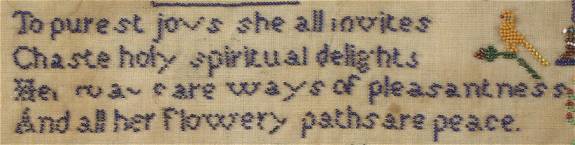 To purest joys she all invites
Chaste holy spiritual delights
Her ways are ways of pleasantness
And all her flowery paths are peace.